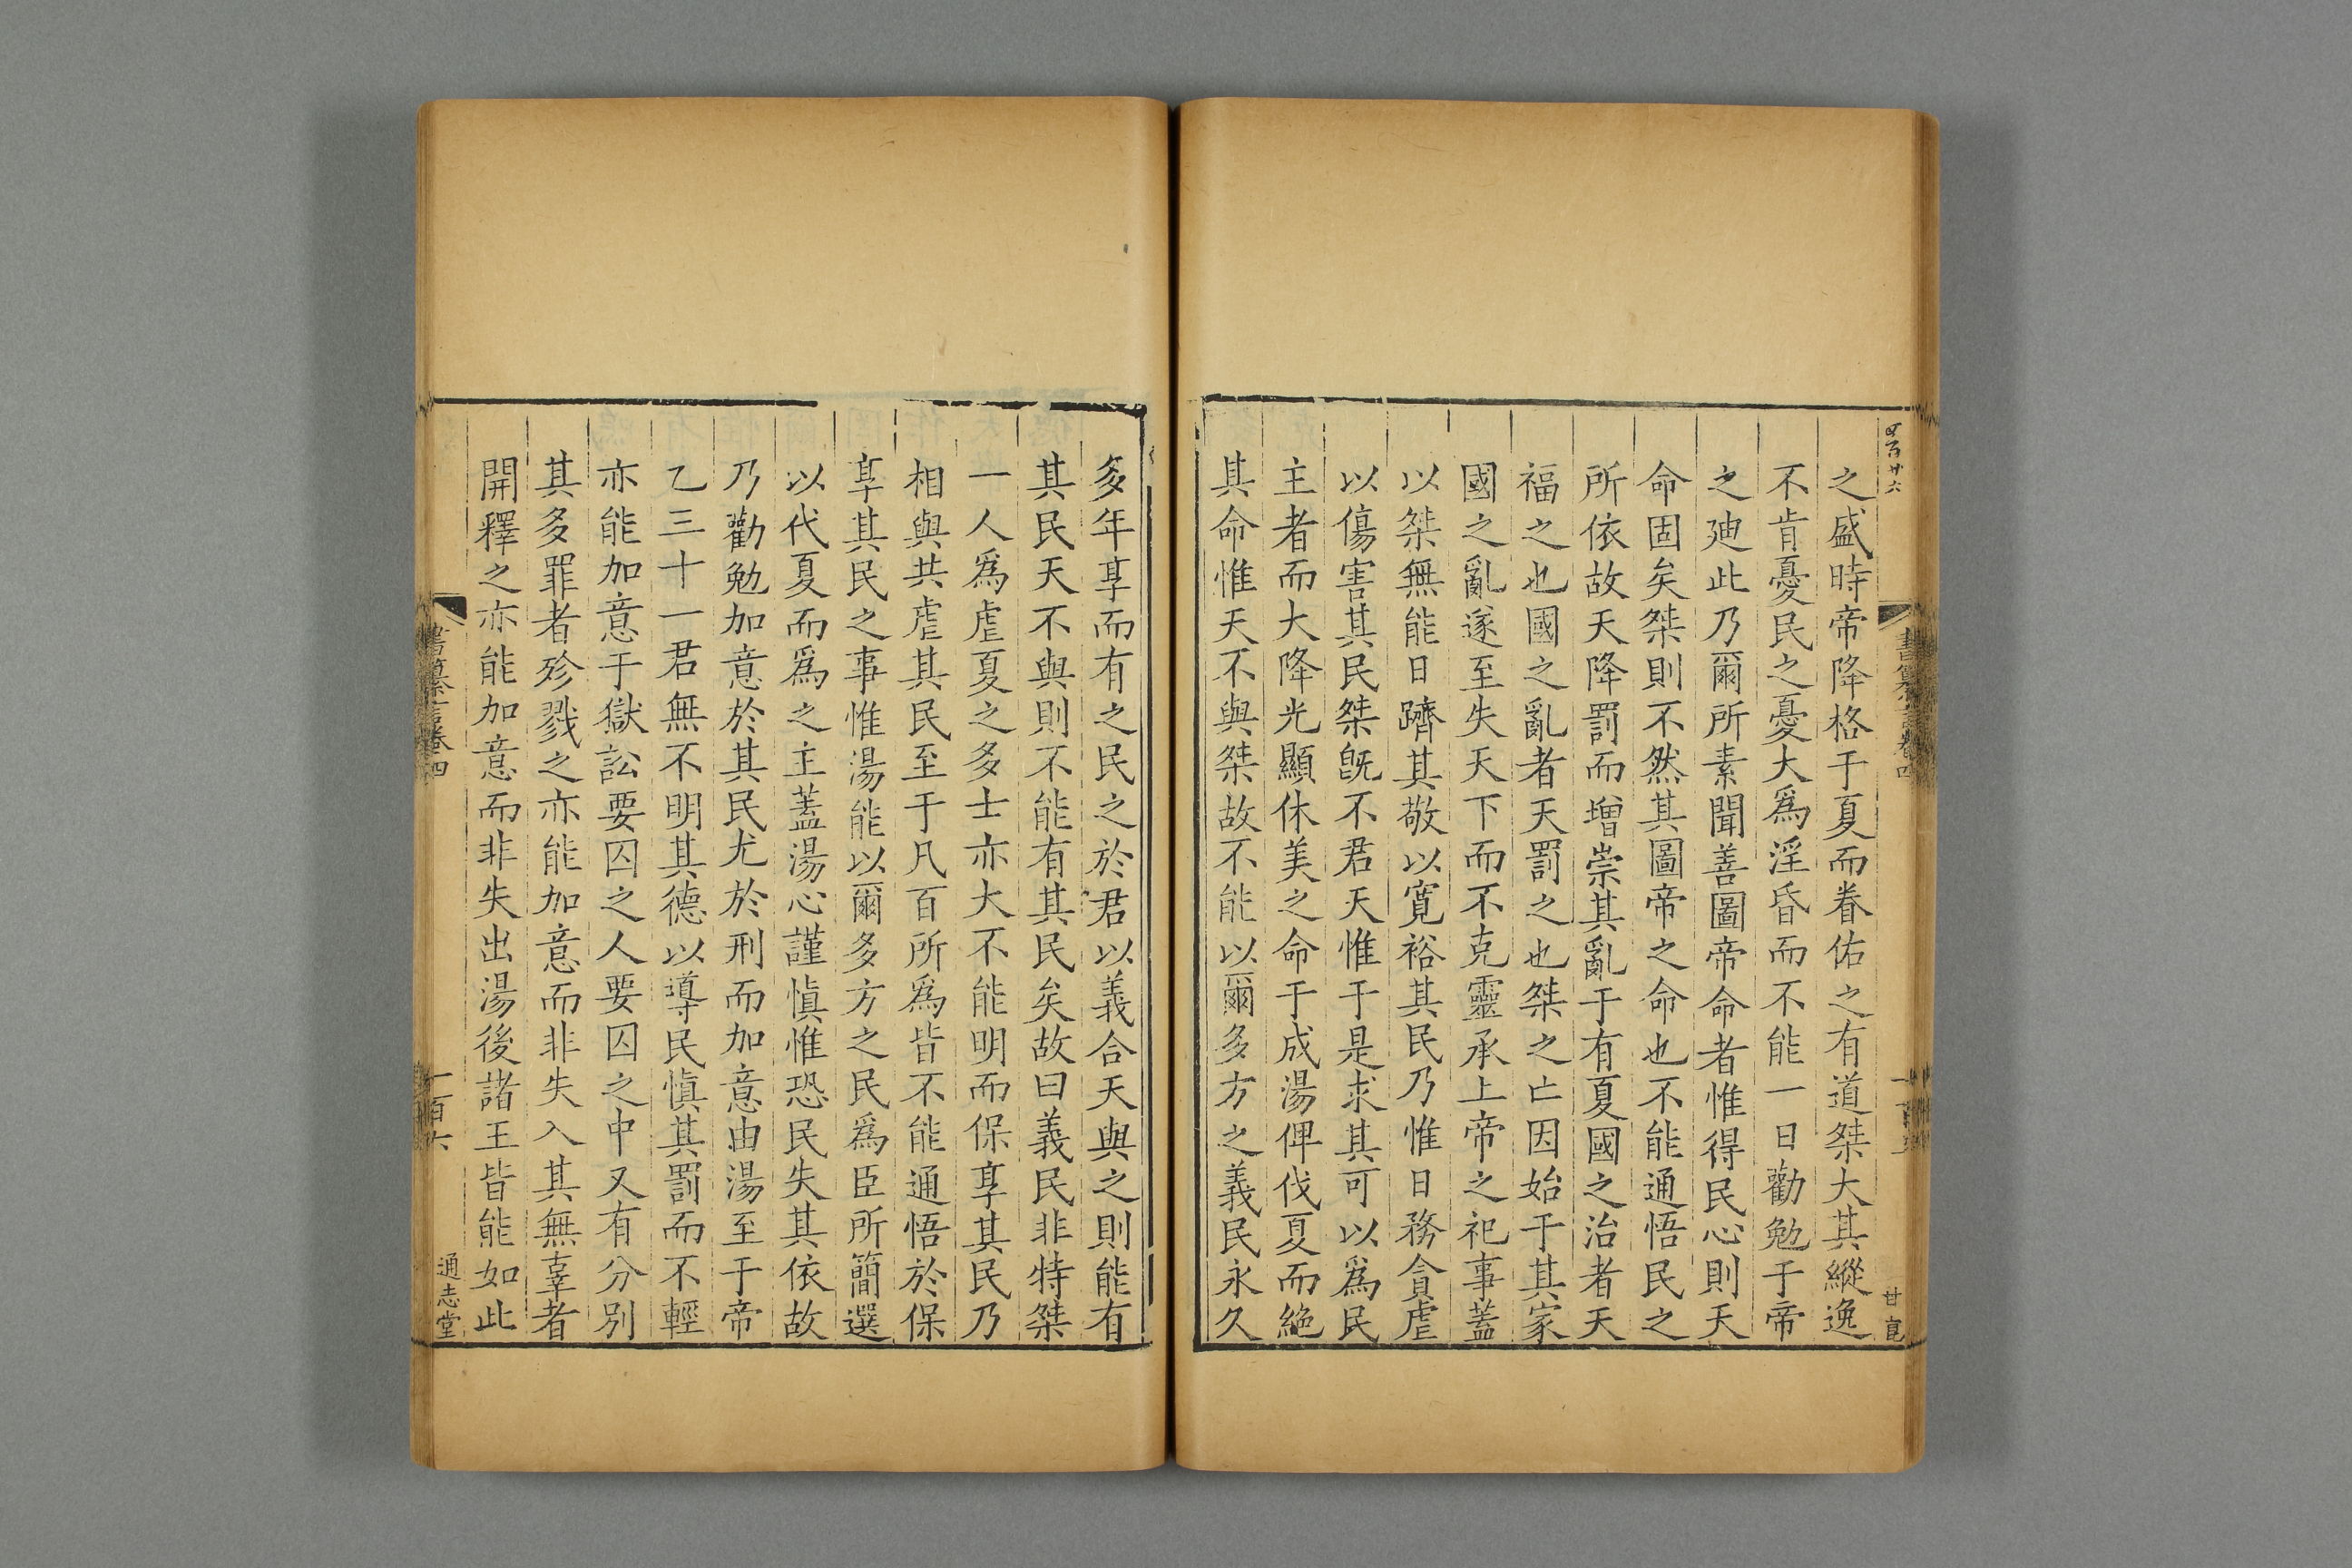 四百廿六
書纂言卷四
甘亮
之盛時帝降格于夏而眷佑之有道桀大其縱逸
不肯憂民之憂大爲淫昏而不能一日勸勉于帝
之迪此乃爾所素聞善圖帝命者惟得民心則天
命固矣桀則不然其圖帝之命也不能通悟民之
所依故天降罰而增崇其亂于有夏國之治者天
福之也國之亂者天罰之也桀之亡因始于其家
國之亂遂至失天下而不克靈承上帝之祀事蓋
以桀無能日躋其敬以寬裕其民乃惟日務貪虐
以傷害其民桀旣不君天惟于是求其可以爲民
主者而大降光顯休美之命于成湯俾伐夏而絶
其命惟天不與桀故不能以爾多方之義民永久
多年享而有之民之於君以義合天與之則能有
其民天不與則不能有其民矣故曰義民非特桀
一人爲虐夏之多士亦大不能明而保享其民乃
相與共虐其民至于凡百所爲皆不能通悟於保
享其民之事惟湯能以爾多方之民爲臣所簡選
以代夏而爲之主蓋湯心謹愼惟恐民失其依故
乃勸勉加意於其民尤於刑而加意由湯至于帝
乙三十一君無不明其德以導民愼其罰而不輕
亦能加意于獄訟要囚之人要囚之中又有分别
其多罪者殄戮之亦能加意而非失入其無辜者
開釋之亦能加意而非失出湯後諸王皆能如此
書纂言卷四
一百六
通志堂